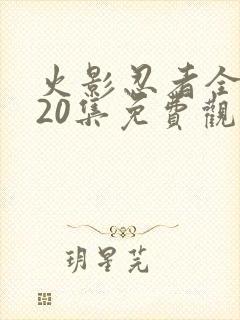 火影忍者全
20集免費觀
玥星芫